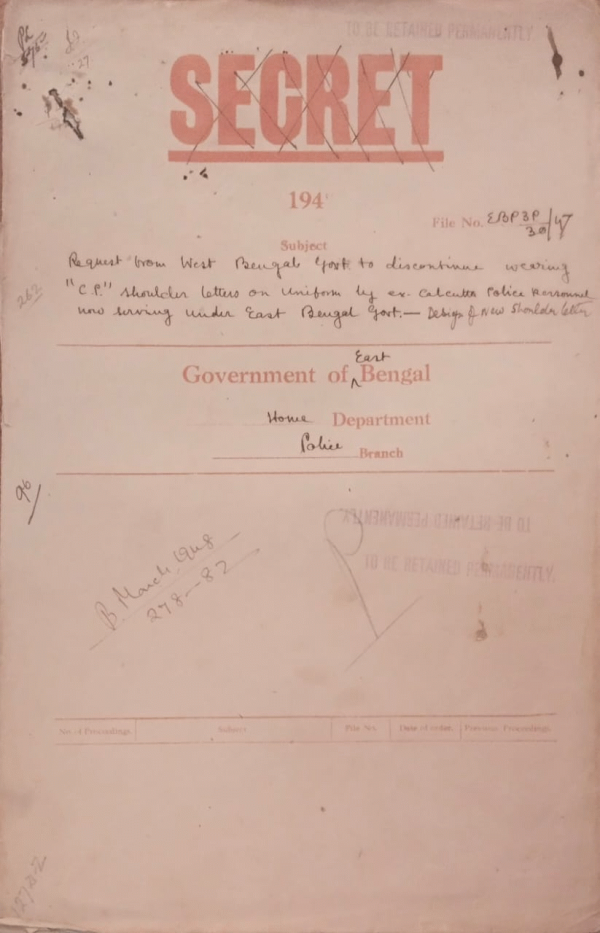 TO BE RETAINED PERMANENTLY.
SECRET
194
File No. EBP3P
30/47
Subject
Request from West Bengal Govt to discontinue wearing
"C.P." shoulder letters on uniform by ex. Calcutta Police Personnel
now serving under East Bengal Govt. — Design of New Shoulder letter
262
East
Government of ^ Bengal
Home Department
Police Branch
96
TO BE RETAINED PERMANENTLY.
TO BE RETAINED PERMANENTLY.
P
B. March 1948
278—82
No. of Proceedings. Subject File No. Date of order. Previous Proceedings.